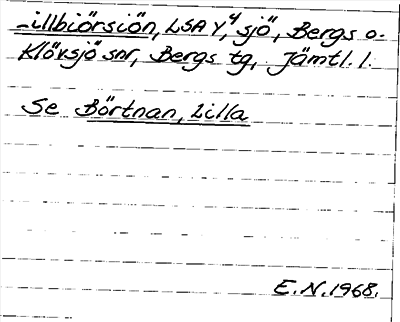 -illbiörsiön, LSA Y,4 sjö, Bergs o.
Klövsjö snr, Bergs tg, Jämtl. l.
Se Börtnan, Lilla
E.N. 1968.